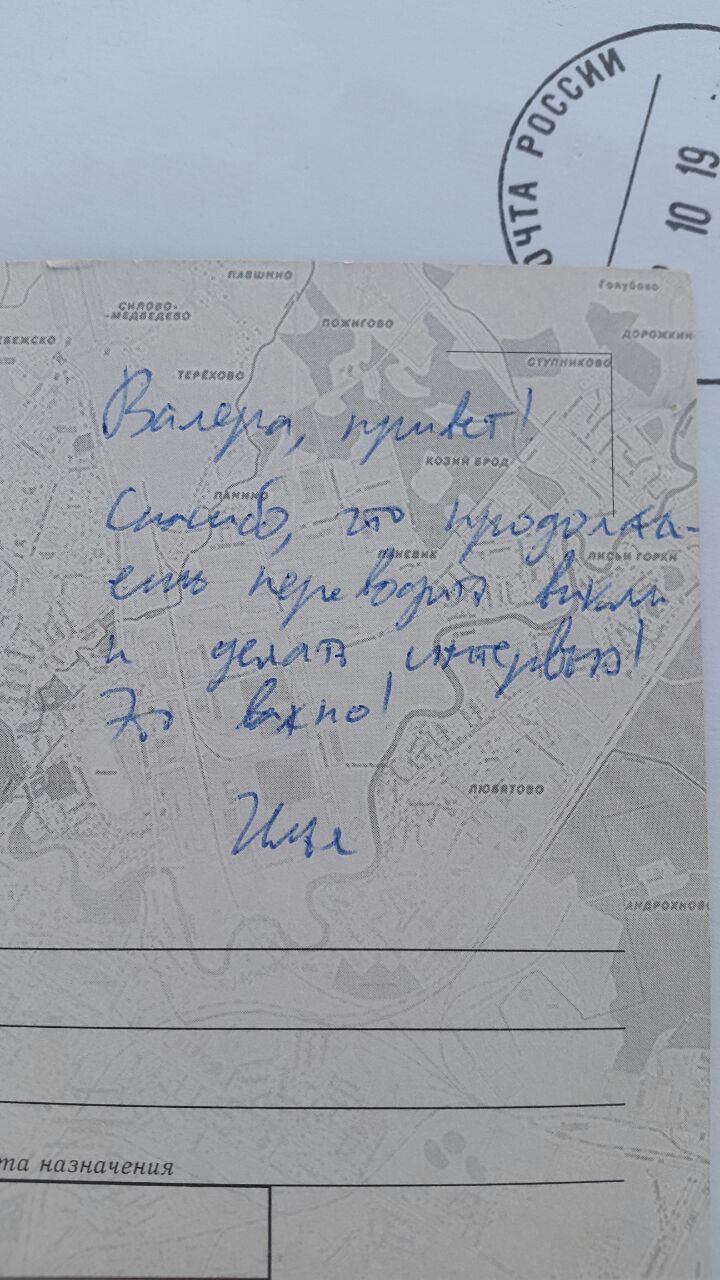 ПОЧТА РОССИИ
10 19
ПАВШИНО
Голубово
СИЛОВО-
-МЕДВЕДЕВО
ПОЖИГОВО
ДОРОЖКИН
ЕБЕЖСКО
СТУПНИКОВО
ТЕРЁХОВО
Валера, привет!
КОЗИЙ БРОД
ПАНИНО
Спасибо, что продолжа-
ЛИСЬИ ГОРКИ
ешь переводить вики
и делать интервью!
Это важно!
ЛЮБЯТОВО
Илья
АНДРОХНОВО
та назначения